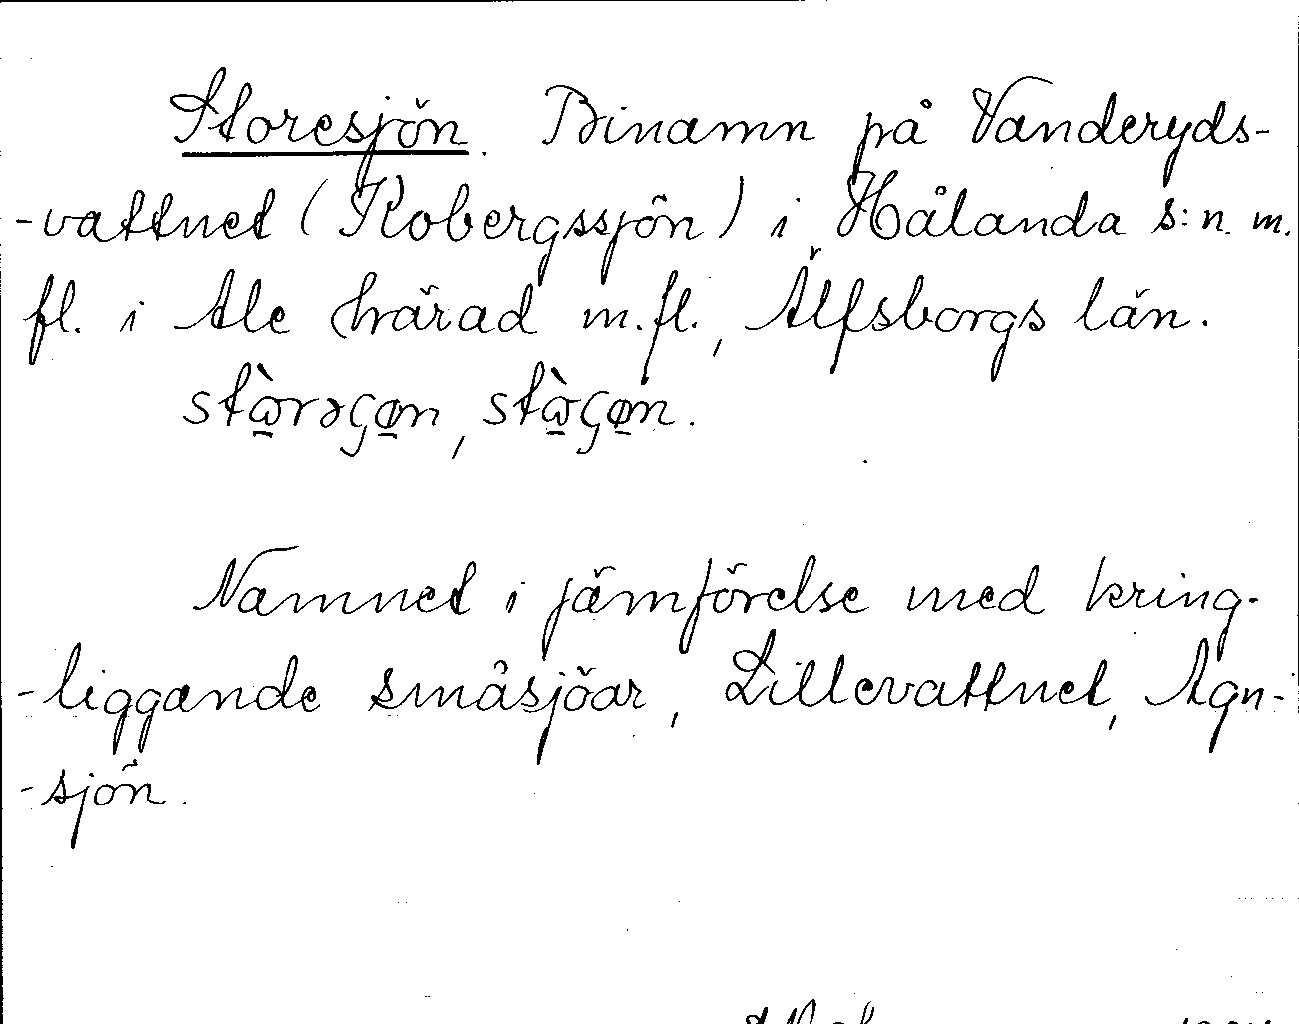 Storesjön. Binamn på Vanderyds-
-vattnet (Kobergssjön) i Hålanda s:n. m.
fl. i Ale härad m.fl., Älfsborgs län.
stɷ̀rəꞔøn, stɷ̀ꞔøn.
Namnet i jämförelse med kring-
-liggande småsjöar, Lillevattnet, Agn-
-sjön.